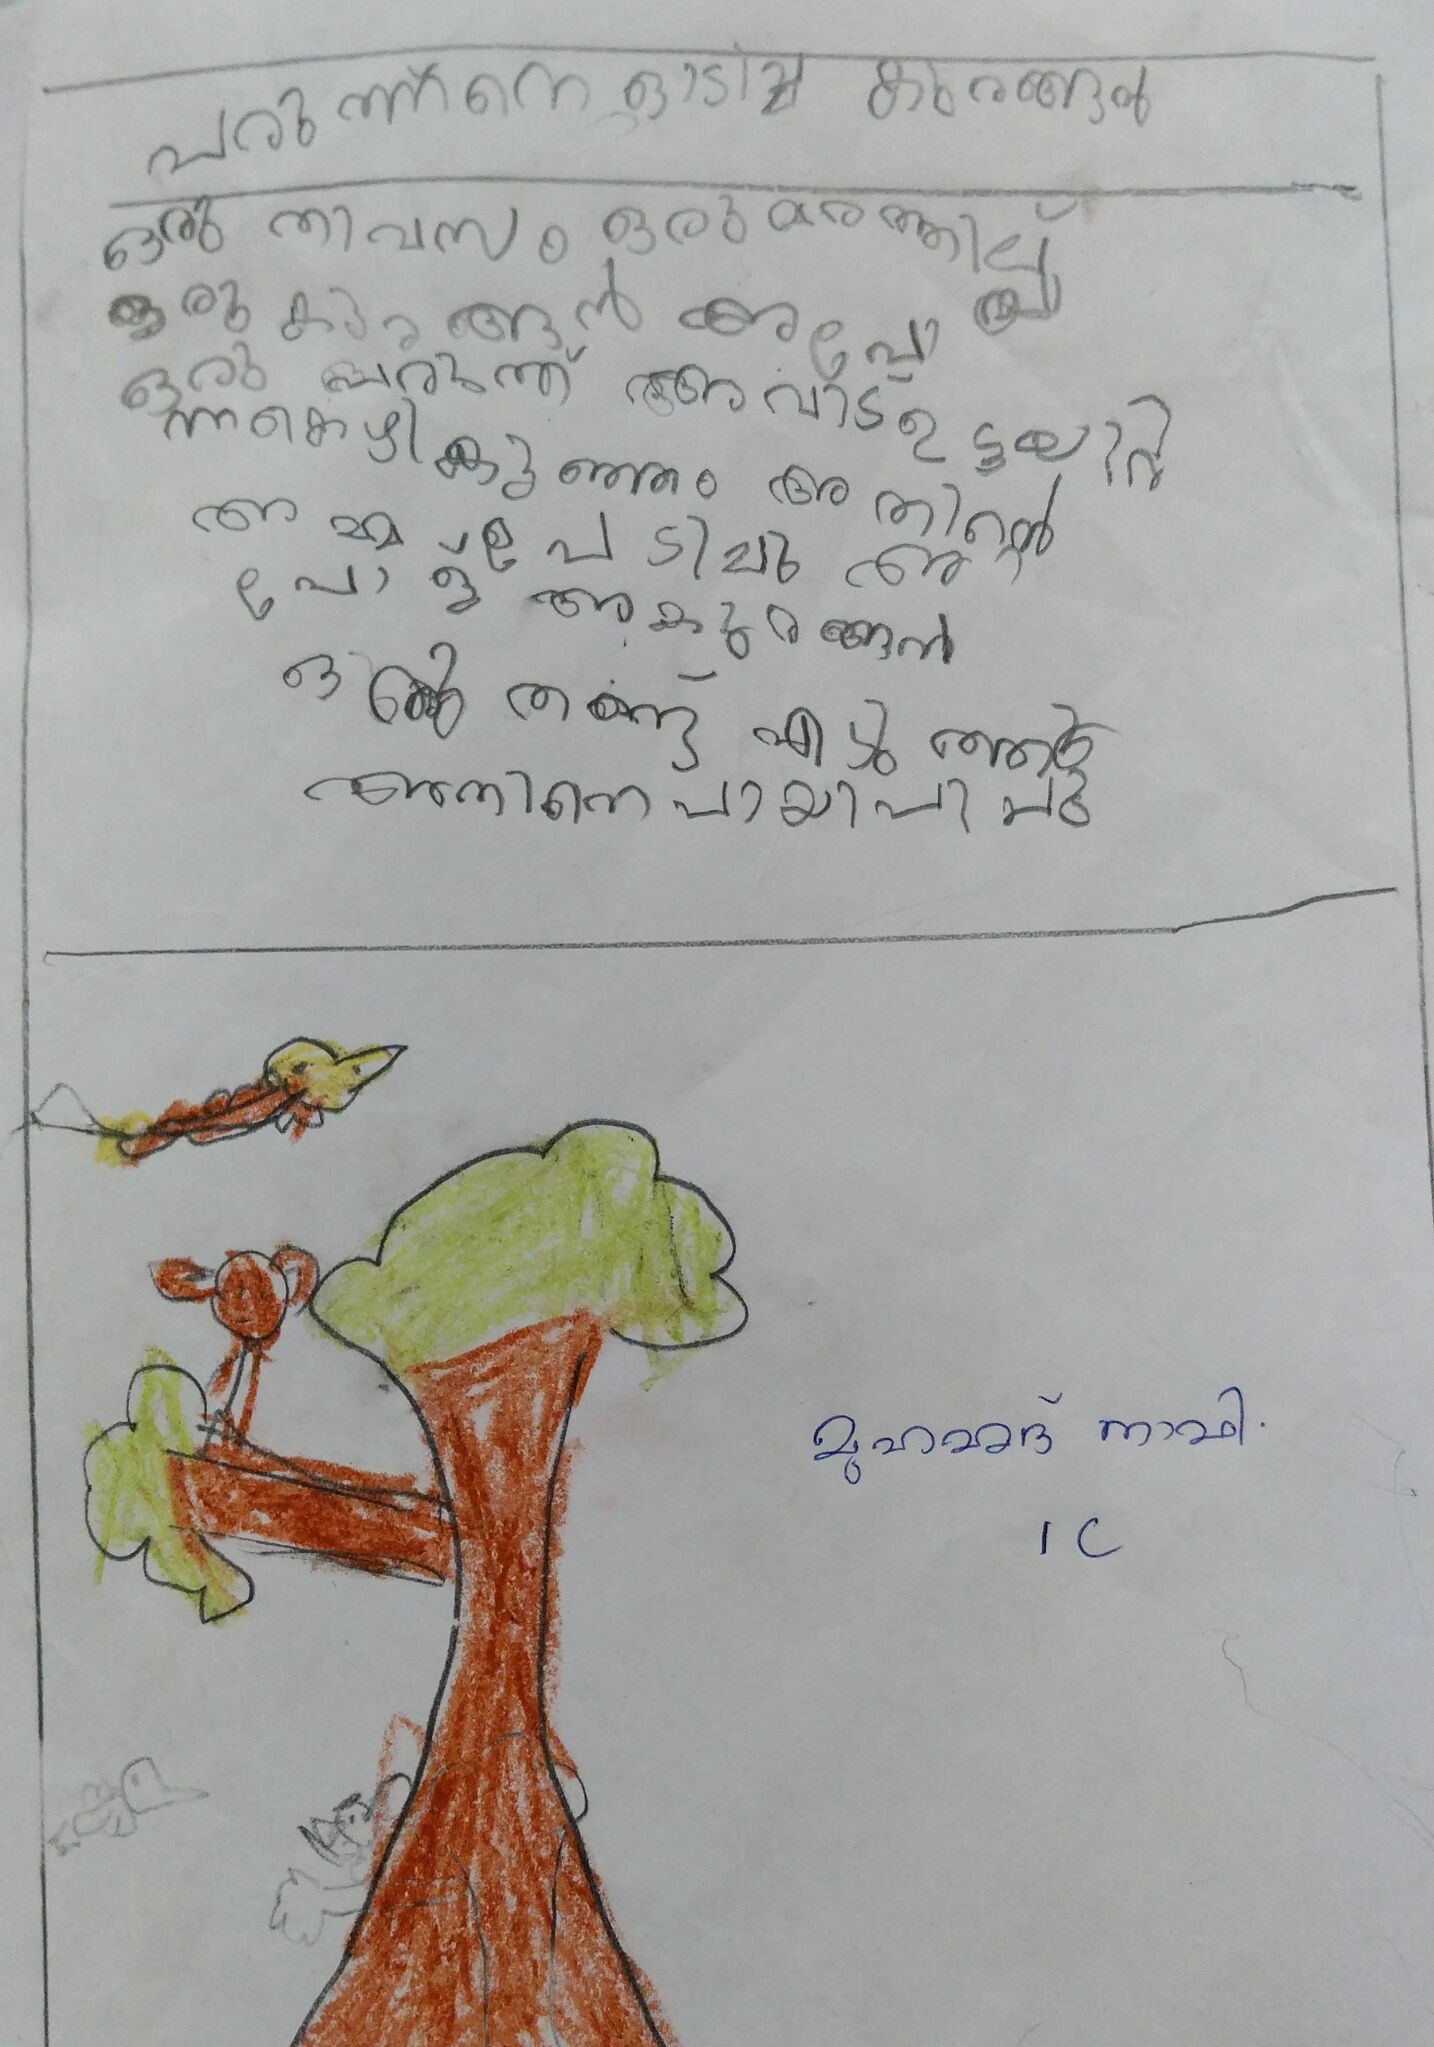 പരുന്തിനെ ഓടിച്ച കുരങ്ങൻ
ഒരു തിവസം ഒരു മരത്തില്
ഒരു കുരങ്ങൻ അപ്പോ
ഒരു പരുന്ത് അവിടെ
കുഞ്ഞും അതിന്റെ
അമ്മ പേടിച്ചു അ
പ്പോള് ആ കുരങ്ങൻ
ഒരു തണ്ട് എടുത്ത്
അതിനെ പായിപിച്ചു
മുഹമ്മദ് നാഫി.
1 C